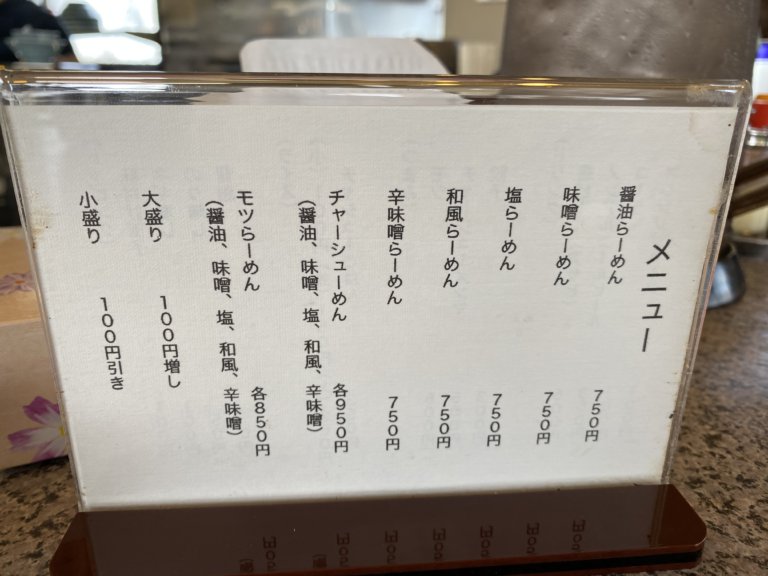 メニュー
醤油らーめん 750円
味噌らーめん 750円
塩らーめん 750円
和風らーめん 750円
辛味噌らーめん 750円
チャーシューめん 各950円
(醤油、味噌、塩、和風、辛味噌)
モツらーめん 各850円
(醤油、味噌、塩、和風、辛味噌)
大盛り 100円増し
小盛り 100円引き